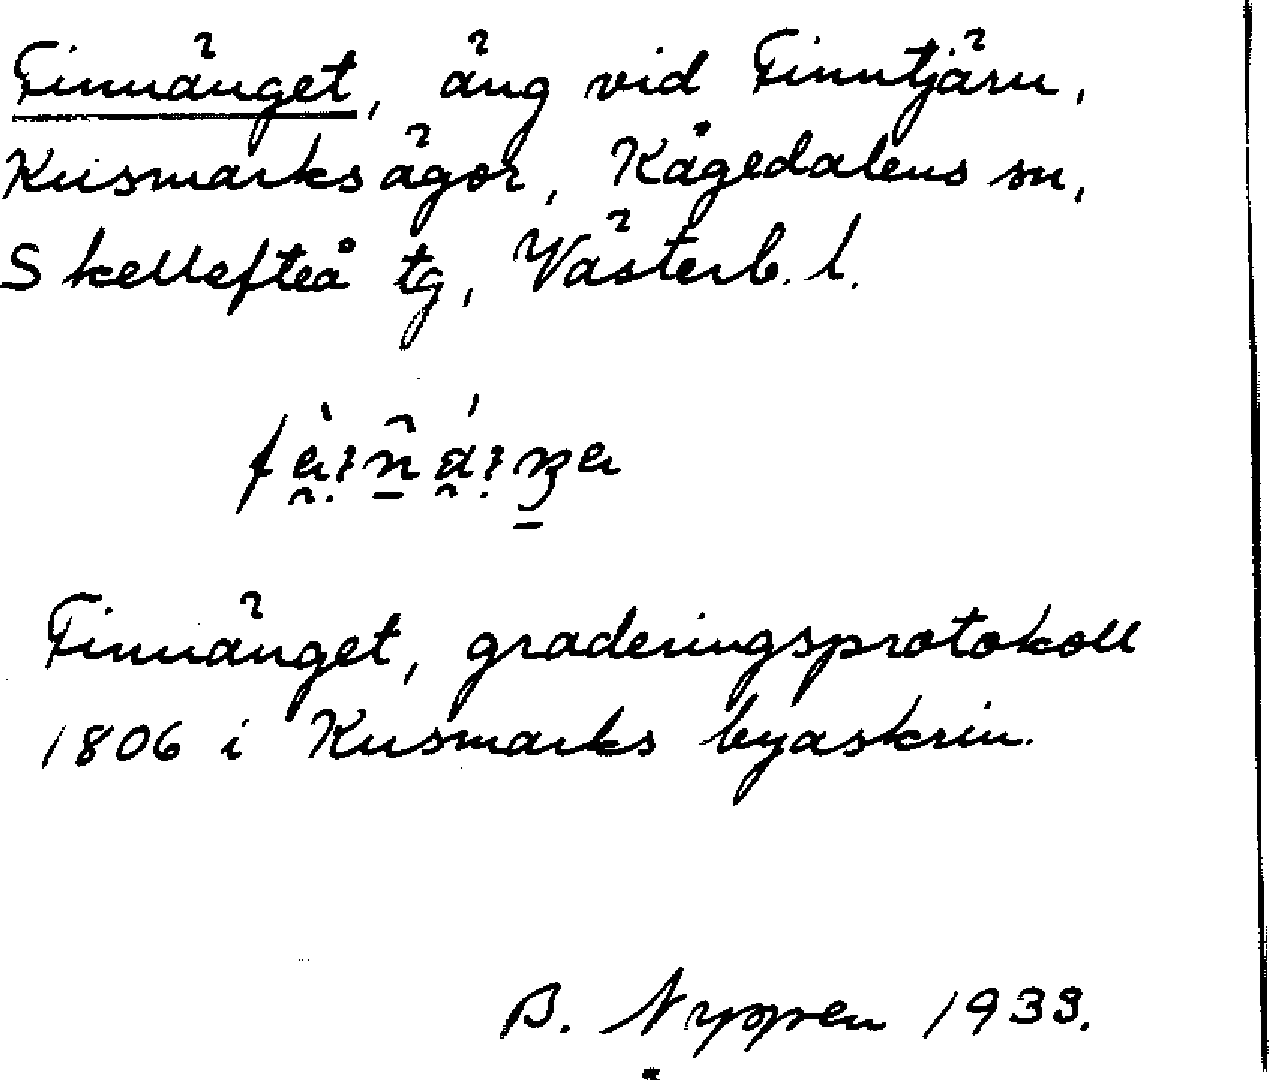 Finnänget, äng vid Finntjärn,
Kusmarks ägor, Kågedalens sn,
Skellefteå tg, Västerb. l.
Finnänget, graderingsprotokoll
1806 i Kusmarks byaskrin.
B. Nyppen 1933.